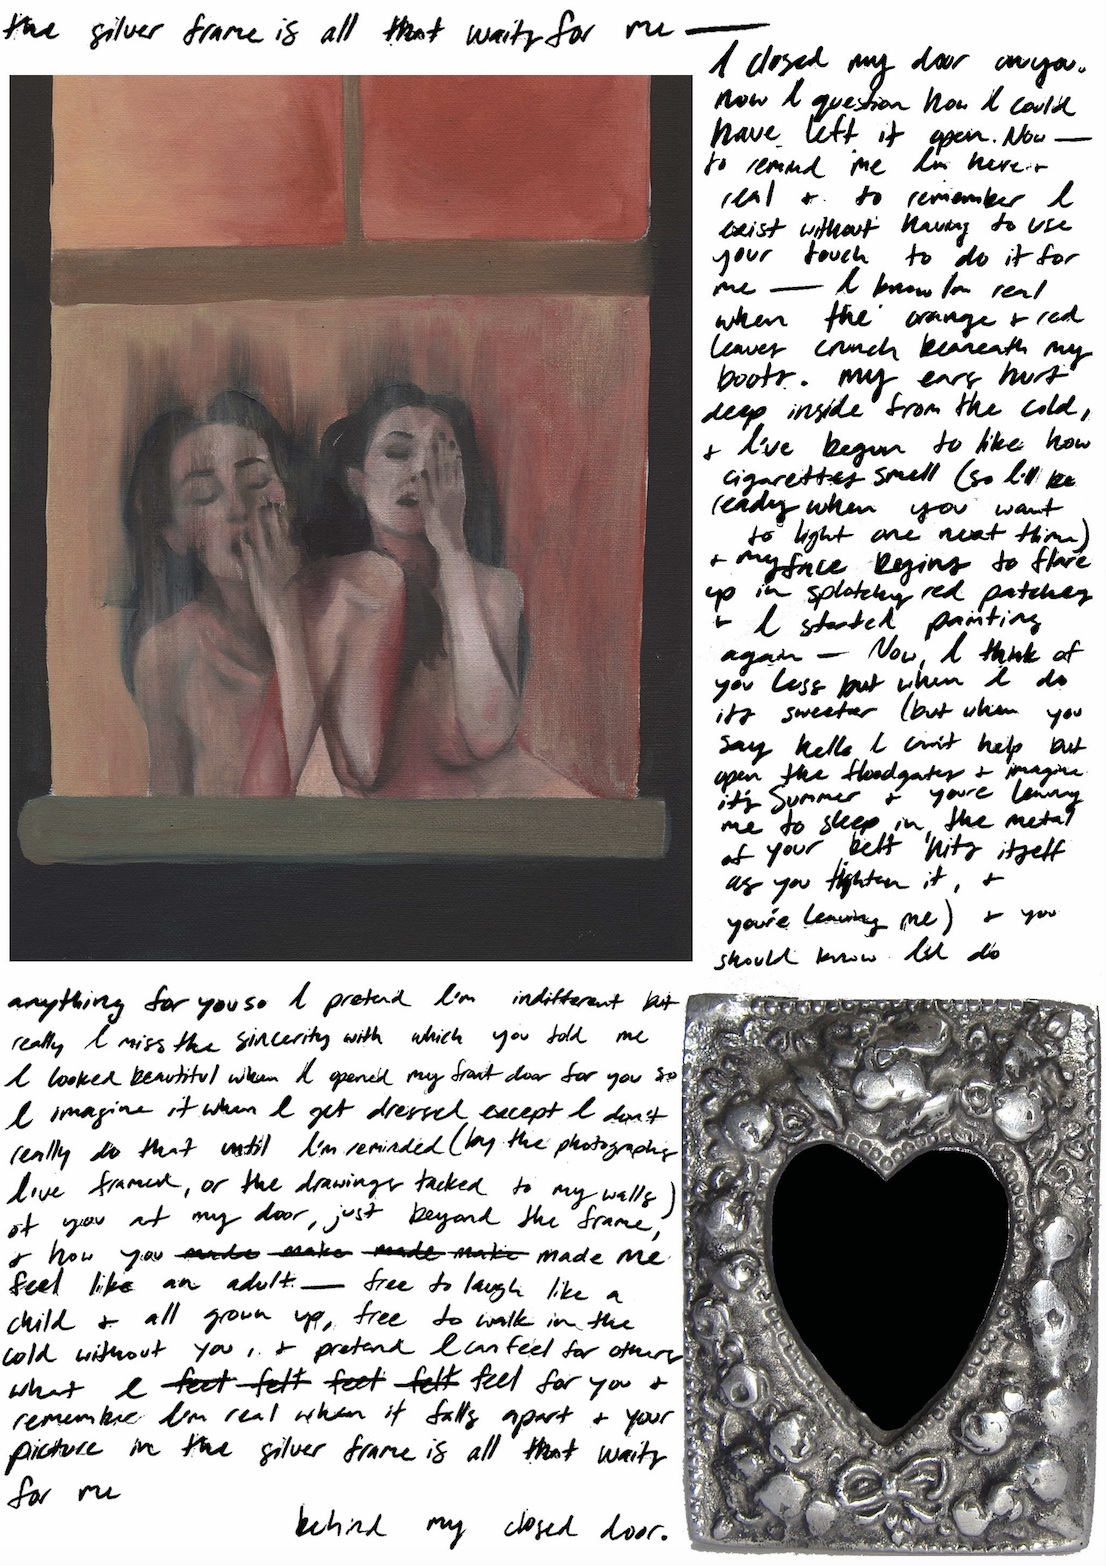 the silver frame is all that waits for me —
I closed my door on you.
Now I question how I could
have left it open. Now —
to remind me I'm here +
real + to remember I
exist without having to use
your touch to do it for
me — I know I'm real
when the orange + red
leaves crunch beneath my
boots. My ears hurt
deep inside from the cold,
+ I've begun to like how
cigarettes smell (so I'll be
ready when you want
to light one next time)
+ my face begins to flare
up in splotchy red patches
+ I started painting
again — Now, I think of
you less but when I do
its sweeter (but when you
say hello I can't help but
open the floodgates + imagine
it's Summer + you're leaving
me to sleep in, the metal
of your belt hits itself
as you tighten it, +
you're leaving me) + you
should know I'd do
anything for you so I pretend I'm indifferent but
really I miss the sincerity with which you told me
I looked beautiful when I opened my front door for you so
I imagine it when I get dressed except I don't
really do that until I'm reminded (by the photographs
I've framed, or the drawings tacked to my walls)
of you at my door, just beyond the frame,
+ how you made make made make made me
feel like an adult — free to laugh like a
child + all grown up, free to walk in the
cold without you, + pretend I can feel for others
what I feel felt feel felt feel for you +
remember I'm real when it falls apart + your
picture in the silver frame is all that waits
for me
behind my closed door.